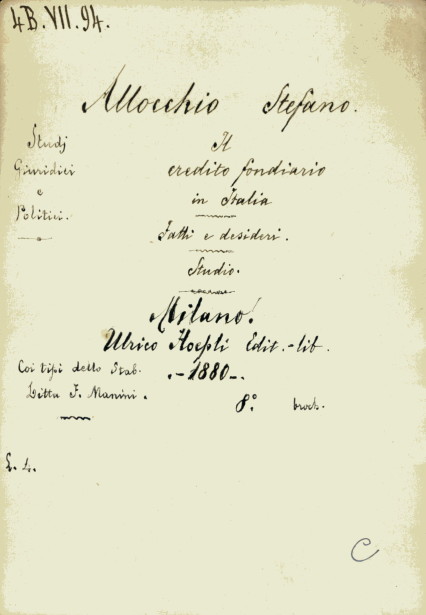 4B.VII.94.
Allocchio Stefano.
Studj
Giuridici
e
Politici.
Il
credito fondiario
in Italia
Fatti e desideri.
Studio.
Milano.
Ulrico Hoepli Edit.-lib.
Coi tipi dello Stab.
Ditta F. Manini.
.-1880-.
8.° broch.
L. 4.
C